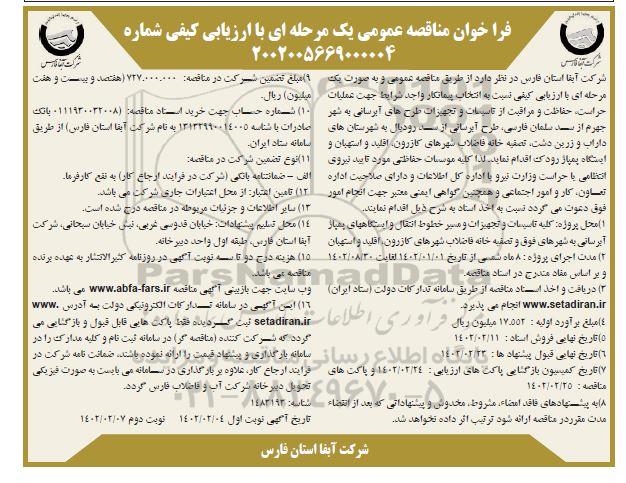 فرا خوان مناقصه عمومی یک مرحله ای با ارزیابی کیفی شماره
۲۰۰۲۰۰۵۶۶۹۰۰۰۰۰۴
شرکت آبفا فارس
شرکت آبفا فارس
شرکت آبفا استان فارس در نظر دارد از طریق مناقصه عمومی و به صورت یک
مرحله ای با ارزیابی کیفی نسبت به انتخاب پیمانکار واجد شرایط جهت عملیات
حراست، حفاظت و مراقبت از تاسیسات و تجهیزات طرح های آبرسانی به شهر
جهرم از سد سلمان فارسی، طرح آبرسانی از سد رودبال به شهرستان های
داراب و زرین دشت، تصفیه خانه فاضلاب شهرهای کازرون، اقلید و استهبان و
ایستگاه پمپاژ رودک اقدام نماید. لذا کلیه موسسات حفاظتی مورد تایید نیروی
انتظامی یا حراست وزارت نیرو یا اداره کل اطلاعات و دارای صلاحیت اداره
تعاون، کار و امور اجتماعی و همچنین گواهی ایمنی معتبر جهت انجام امور
فوق دعوت می گردد نسبت به اخذ اسناد به شرح ذیل اقدام نمایند.
۱)محل پروژه: کلیه تاسیسات و تجهیزات و مسیر خطوط انتقال و ایستگاههای پمپاژ
آبرسانی به شهرهای فوق و تصفیه خانه فاضلاب شهرهای کازرون، اقلید و استهبان
۲) مدت اجرای پروژه : ۸ ماه شمسی از تاریخ ۱۴۰۲/۰۱/۰۱ لغایت ۱۴۰۲/۰۸/۳۰
و بر اساس مفاد مندرج در اسناد مناقصه.
۳) دریافت و اخذ اسناد مناقصه از طریق سامانه تدارکات دولت (ستاد ایران)
www.setadiran.ir انجام می پذیرد.
۴)مبلغ برآورد اولیه : ۱۷.۵۵۲ میلیون ریال
۵)تاریخ نهایی فروش اسناد : ۱۴۰۲/۰۲/۱۱
۶)تاریخ نهایی قبول پیشنهاد ها : ۱۴۰۲/۰۲/۲۳
۷)تاریخ کمیسیون بازگشایی پاکت های ارزیابی : ۱۴۰۲/۰۲/۲۴ و پاکت های
مناقصه : ۱۴۰۲/۰۲/۲۵
۸)به پیشنهادهای فاقد امضاء، مشروط، مخدوش و پیشنهاداتی که بعد از انقضاء
مدت مقرردر مناقصه ارائه شود ترتیب اثر داده نخواهد شد.
۹)مبلغ تضمین شرکت در مناقصه: ۷۲۷.۰۰۰.۰۰۰ (هفتصد و بیست و هفت
میلیون) ریال.
۱۰) شماره حساب جهت خرید اسناد مناقصه: (۰۱۱۱۹۳۰۰۳۲۰۰۸ بانک
صادرات با شناسه ۱۳۱۳۲۹۹۰۰۱۴۰۰۵ به نام شرکت آبفا استان فارس) از طریق
سامانه ستاد ایران.
۱۱)نوع تضمین شرکت در مناقصه:
الف – ضمانتنامه بانکی (شرکت در فرایند ارجاع کار) به نفع کارفرما.
۱۲) تامین اعتبار: از محل اعتبارات جاری شرکت می باشد.
۱۳) سایر اطلاعات و جزئیات مربوطه در مناقصه درج شده است.
۱۴)محل تسلیم پیشنهادات: خیابان قدوسی غربی، نبش خیابان سبحانی، شرکت
آبفا استان فارس، طبقه اول واحد دبیرخانه.
۱۵) هزینه درج دو تا سه نوبت آگهی در روزنامه کثیرالانتشار به عهده برنده
مناقصه می باشد.
وب سایت جهت بازبینی آگهی مناقصه www.abfa-fars.ir می باشد.
۱۶) این آگهی در سامانه تدارکات الکترونیکی دولت به آدرس www.
setadiran.ir ثبت گردیده فقط پاکت هایی قابل قبول و بازگشایی می
گردد که شرکت کننده (مناقصه گر) در سامانه ثبت نام و کلیه مدارک را در
سامانه بارگذاری و پیشنهاد قیمت را ارائه نموده باشند. ضمانت نامه شرکت در
فرایند ارجاع کار، علاوه بر بارگذاری در سامانه می بایست به صورت فیزیکی
تحویل دبیرخانه شرکت آب و فاضلاب فارس گردد.
شناسه: ۱۴۸۳۱۹۳
تاریخ آگهی نوبت اول ۱۴۰۲/۰۲/۰۴ نوبت دوم ۱۴۰۲/۰۲/۰۷
شرکت آبفا استان فارس
ParsNamadData